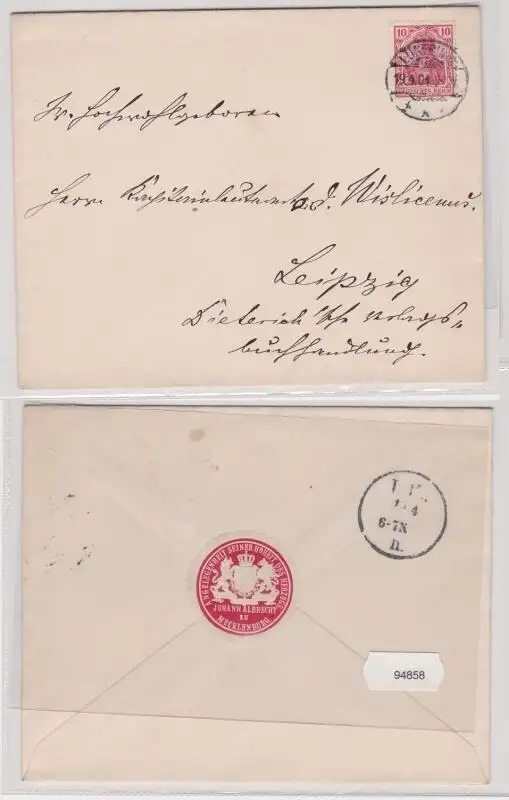 10 10
19.4.04.
DEUTSCHES REICH
Sr. Hochwohlgeboren
Herrn Kapitainleutnant a.d. Wislicenus.
Leipzig
Dieterich'sche Verlags„
buchhandlung.
4
6-7N
ANGELEGENHEIT SEINER HOHEIT DES HERZOGS
JOHANN ALBRECHT
ZU
MECKLENBURG
94858